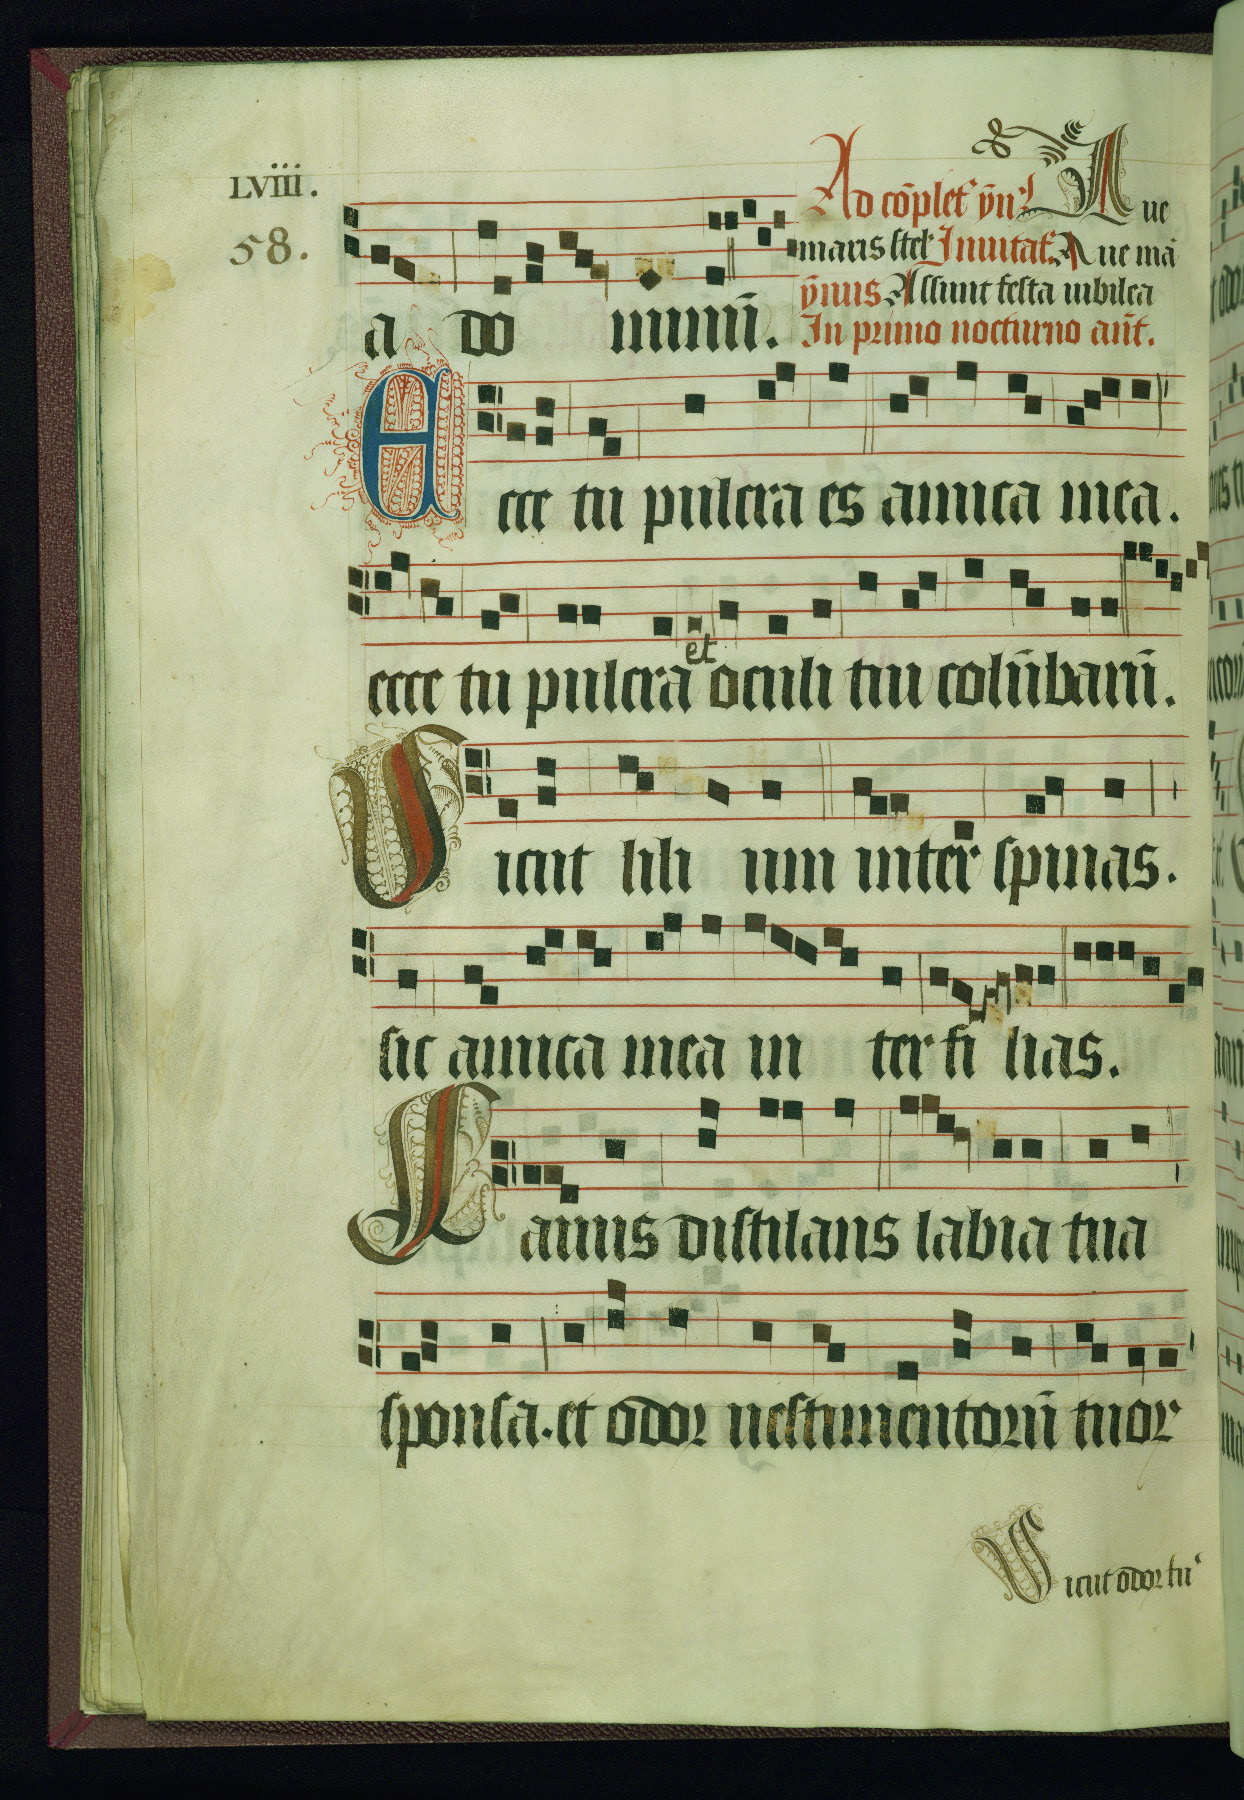 LVIII.
58.
Ad cōplet᷑ ȳn᷒ Aue
maris stel᷑ Inuitat᷑. Aue mā
ȳnus Assunt festa iubilea
a do minum̄. In primo nocturno ant̄.
Ecce tu pulcra es amica mea.
ecce tu pulcra et oculi tui colūbarū.
Sicut lili um inter spinas.
sic amica mea in ter fi lias.
Fauus distilans labia tua
sponsa. et odor uestimentorū tuor
Sicut odor tu᷒